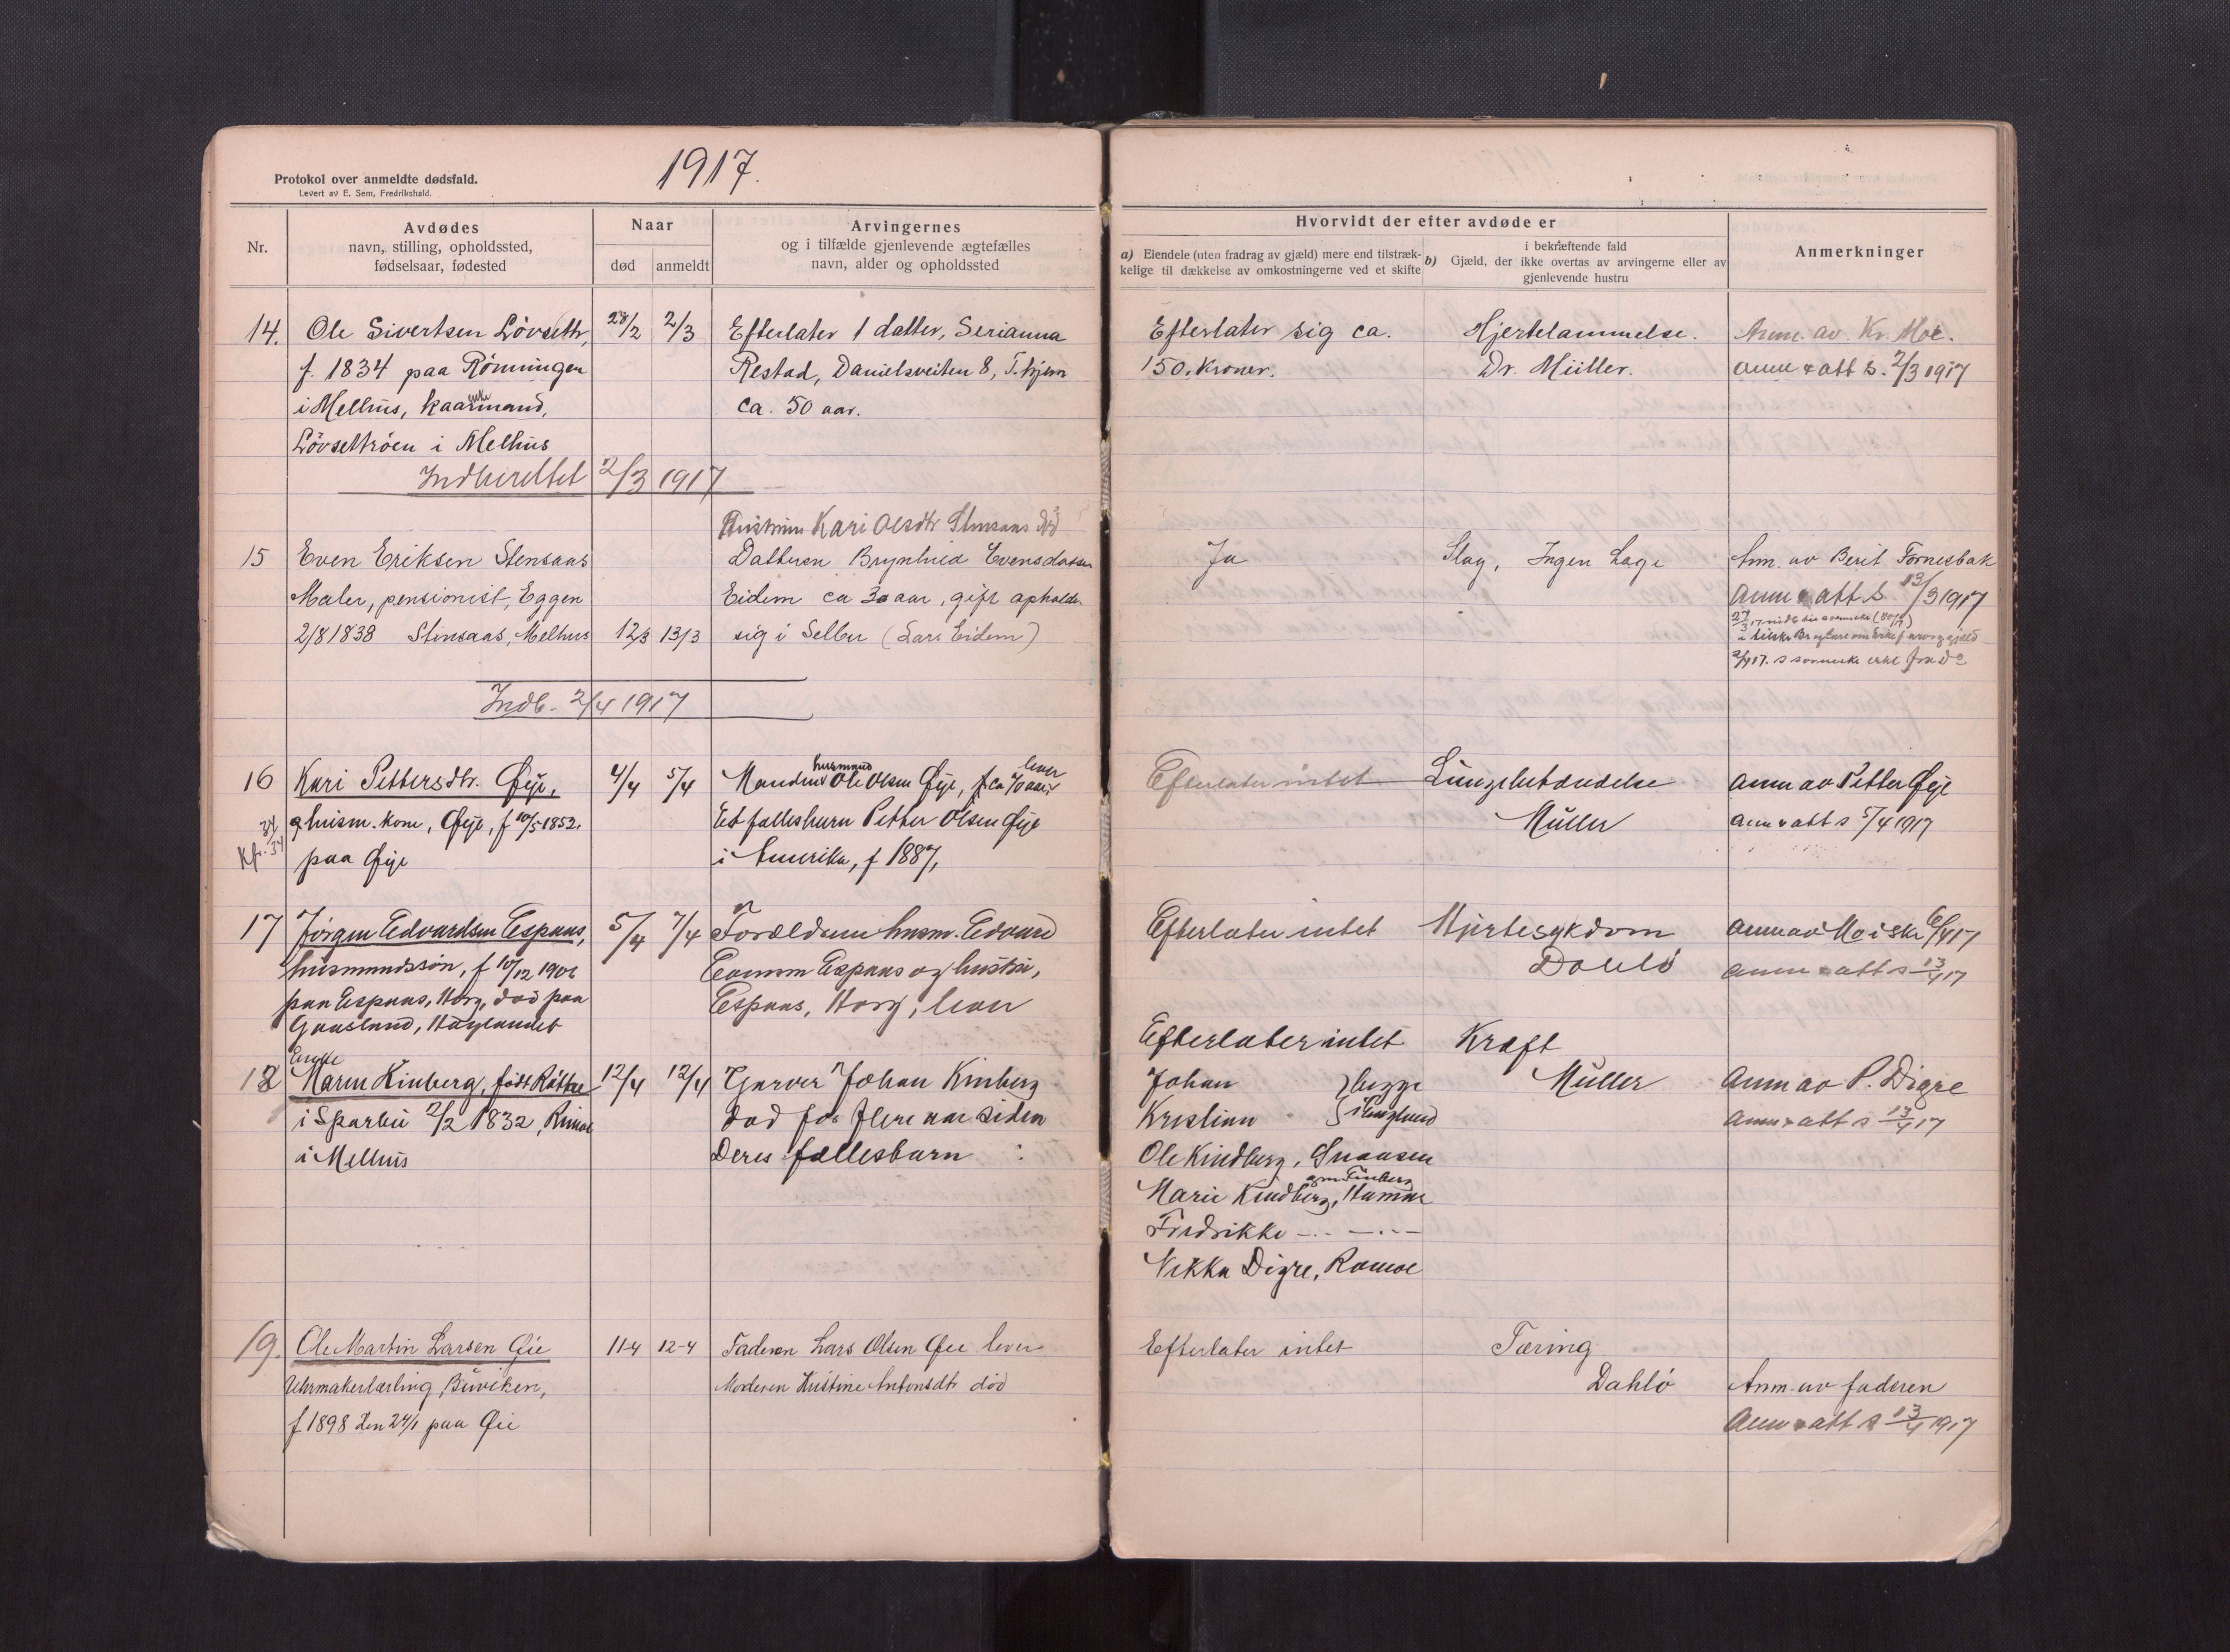 1917.
Protokol over anmeldte dødsfald.
Levert av E. Sem, Fredrikshald.
Nr.
Avdødes
navn, stilling, opholdssted,
fødselsaar, fødested
Naar
død
anmeldt
Arvingernes
og i tilfælde gjenlevende ægtefælles
navn, alder og opholdssted
Hvorvidt der efter avdøde er
a) Eiendele (uten fradrag av gjæld) mere end tilstræk-
kelige til dækkelse av omkostningerne ved et skifte
i bekræftende fald
b) Gjæld, der ikke overtas av arvingerne eller av
gjenlevende hustru
Anmerkninger
14. Ole Sivertsen Lövseth, 28/2 2/3 Efterlater 1 datter, Serianna
f. 1834 paa Rönningen Restad, Danielsveiten 8, T.hjem
i Mellhus, kaarmand, ca. 50 aar.
Lövsethröen i Melhus
Indberettet 2/3 1917
Efterlater sig ca. Hjertelammelse. Anm. av Kr. Moe.
150. Kroner. Dr. Müller. anm & att s. 2/3 1917
Hustruen Kari Olsdtr Stensaas död
15 Even Eriksen Stensaas Datteren Brynhild Evensdatter
Maler, pensionist, Eggen Eidem ca 30 aar, gift opholder
2/8 1838 Stensaas, Melhus 12/3 13/3 sig i Selbu (Lars Eidem)
Indb. 2/4 1917
Ja Slag, Ingen Læge Anm. av Berit Fornesbak
Anm & att s. 13/3 1917
16 Kari Pettersdtr. Øye, 4/4 5/4 Manden husmand Ole Olsen Øye, f. ca 70 aar lever
husm. kone, Øye, f 10/5 1852. Et fællesbarn Petter Olsen Øye
Kfr. 34 paa Øye i Amerika, f 1887,
Efterlater intet Lungebetændelse anm av Petter Øye
Müller anm & att s 5/4 1917
17 Jörgen Edvardsen Espaas, 5/4 7/4 Forældrene husm. Edvard
husmandssön, f 10/12 1901 Espaas og hustru,
paa Espaas, Horg, död paa Espaas, Horg, lever
Gaasland, Hölandet
Efterlater intet Hjertesykdom anm av Moisk 6/4 17
Dahlö anm & att s 13/4 17
Enke
18 Maren Kinberg, født Røttte 12/4 12/4 Garver Johan Kinberg
i Sparbu 2/2 1832, död for flere aar siden
i Melhus Deres fællesbarn :
Efterlater intet Kræft
Johan } begge Müller Anm av P. Digre
Kristian } i England anm & att s 13/4 17
Ole Kindberg, Snaasen
Marie Kindberg, Hammer
Fredrikke —..— —.—
Nikka Digre, Romoe
19. Ole Martin Larsen Øie 11-4 12-4 Faderen Lars Olsen Øie lever
Uhrmakerlærling, Buviken, Moderen Kristine Antonsdtr död
f. 1898 den 24/1 paa Øie
Efterlater intet Tæring
Dahlö Anm. av faderen
Anm & att s 13/4 1917